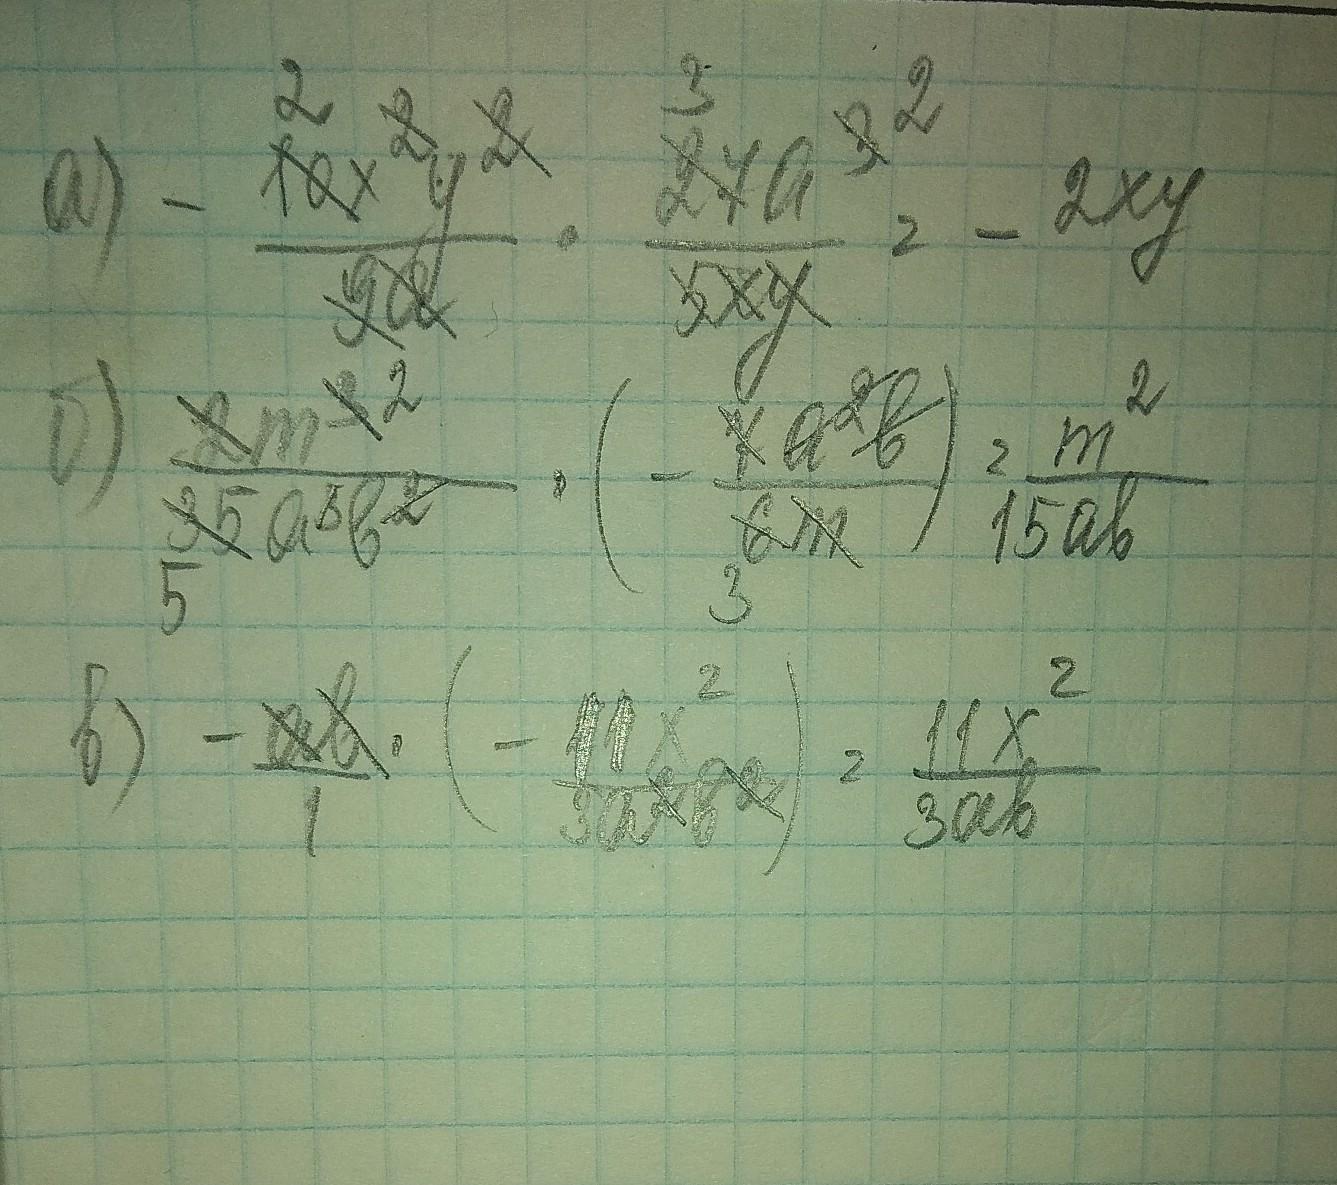 2 3 2
а) - 10x²y² / 9a · 27a³ / 5xy = - 2xy
б) 2m³ 2 / 35a⁵b² · (- 7a²b / 6m) = m² / 15ab
5 3
в) - ab / 1 · (- 11x² / 3a²b²) = 11x² / 3ab